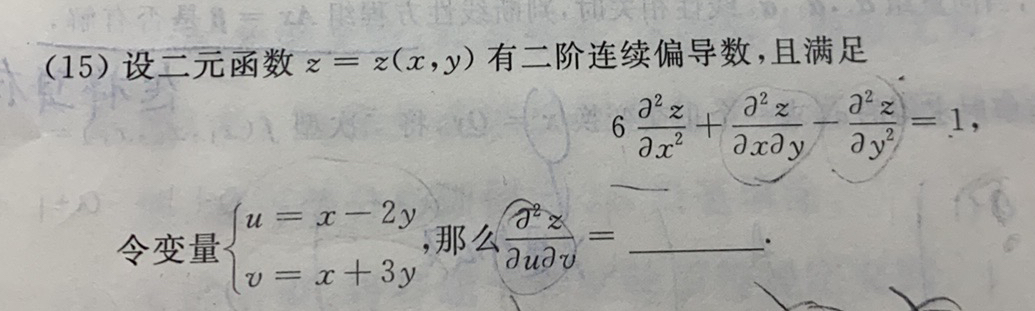 (15) 设二元函数 z = z(x,y) 有二阶连续偏导数,且满足
6 ∂²z/∂x² + ∂²z/∂x∂y − ∂²z/∂y² = 1,
令变量 { u = x − 2y
v = x + 3y ,那么 ∂²z/∂u∂v = ________.